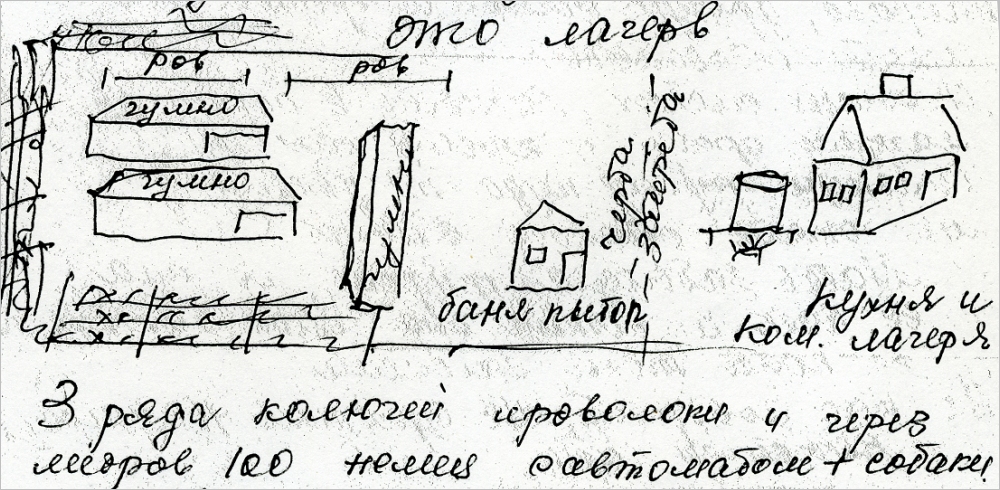 это лагерь
ров
ров
гумно
гумно
гумно
черта
лагеря
баня пыток
кухня и
ком. лагеря
3 ряда колючей проволоки и через
метров 100 немец с автоматом + собаки